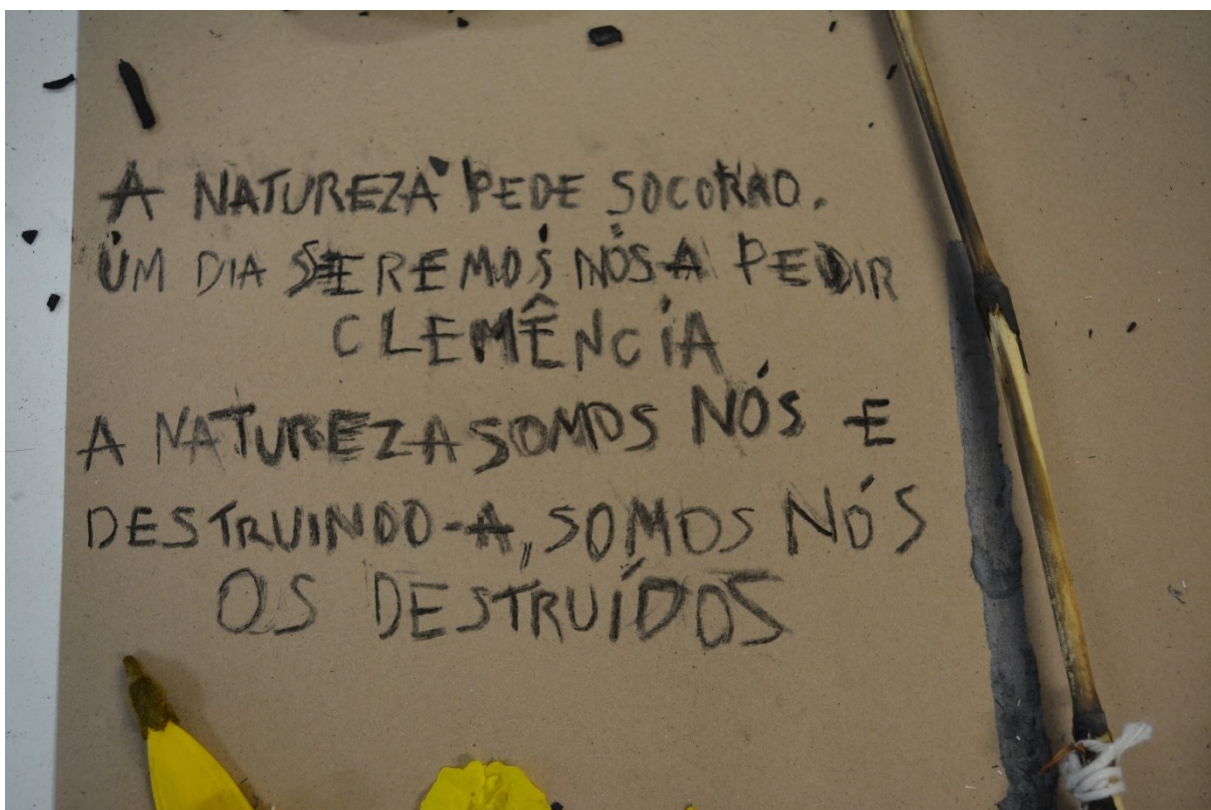 A NATUREZA PEDE SOCORRO.
UM DIA SEREMOS NÓS A PEDIR
CLEMÊNCIA
A NATUREZA SOMOS NÓS E
DESTRUINDO-A, SOMOS NÓS
OS DESTRUÍDOS